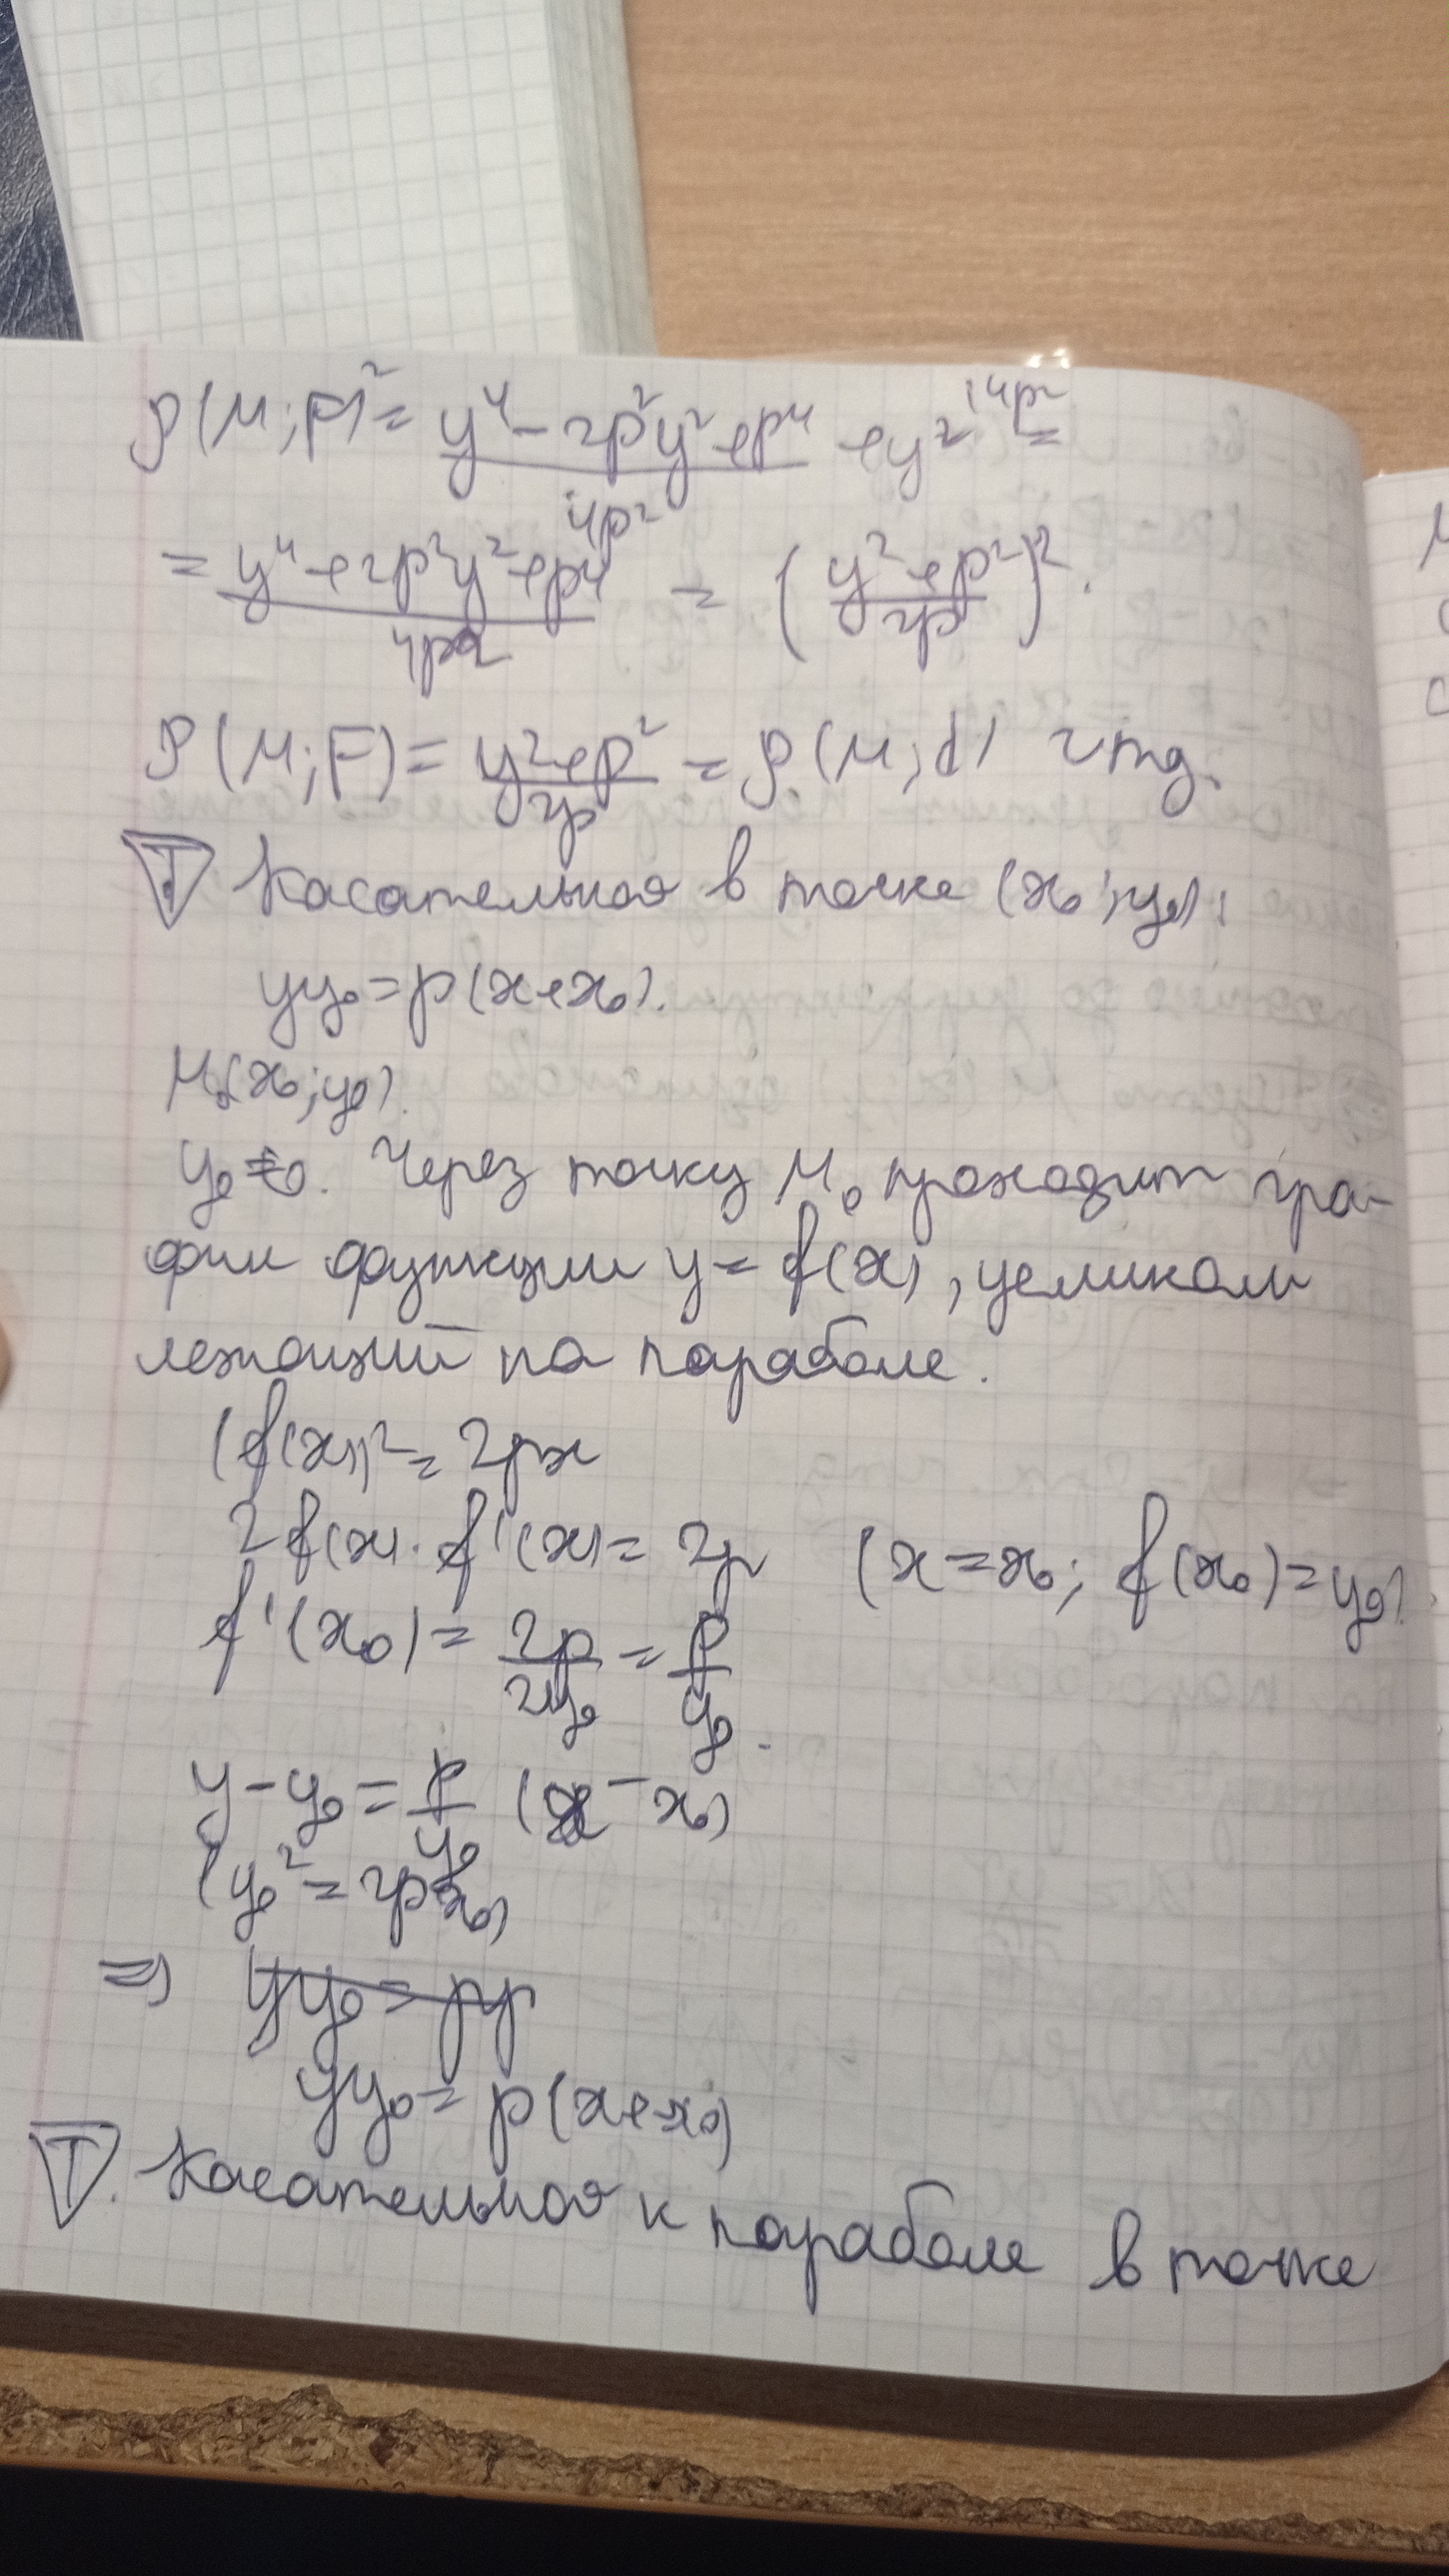 ρ(M;F)² = (y⁴ - 2p²y² + p⁴)/4p² + y² ^{|4p²} =
= (y⁴ + 2p²y² + p⁴)/4p² = ((y² + p²)/2p)².
ρ(M;F) = (y² + p²)/2p = ρ(M;d) чтд.
T. Касательная в точке (x₀;y₀):
yy₀ = p(x + x₀).
M₀(x₀;y₀).
y₀ ≠ 0. Через точку M₀ проходит гра-
фик функции y = f(x), целиком
лежащий на параболе.
(f(x))² = 2px
2f(x)·f'(x) = 2p (x = x₀; f(x₀) = y₀).
f'(x₀) = 2p/2y₀ = p/y₀.
y - y₀ = p/y₀ (x - x₀)
(y₀² = 2px₀)
⇒ yy₀ = py
yy₀ = p(x + x₀)
T. Касательная к параболе в точке